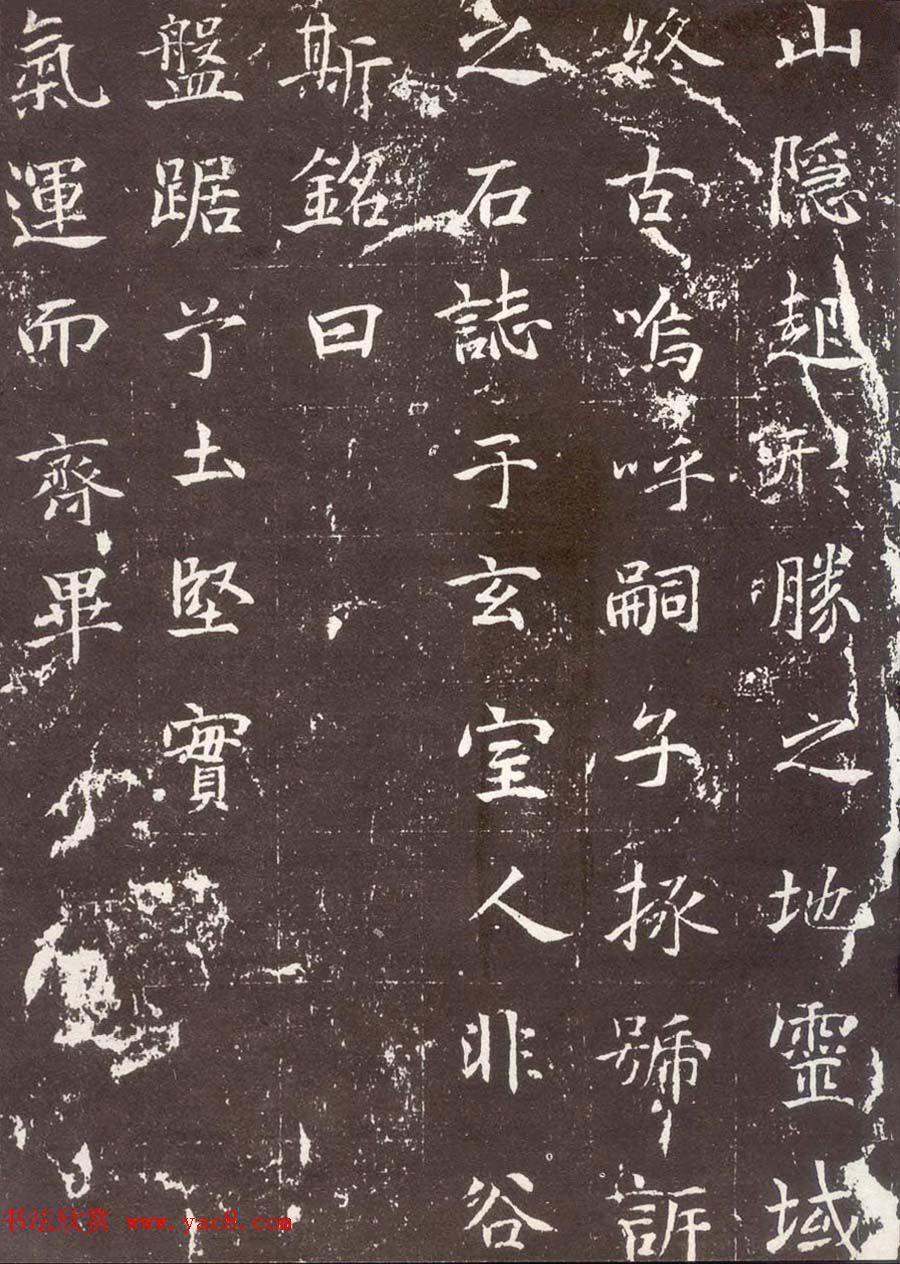 山隱起形勝之地靈域
終古嗚呼嗣子掾號訴
之石誌于玄室人非谷
斯銘曰
盤踞兮土堅實
氣運而齊畢
书法欣赏 www.yac8.com